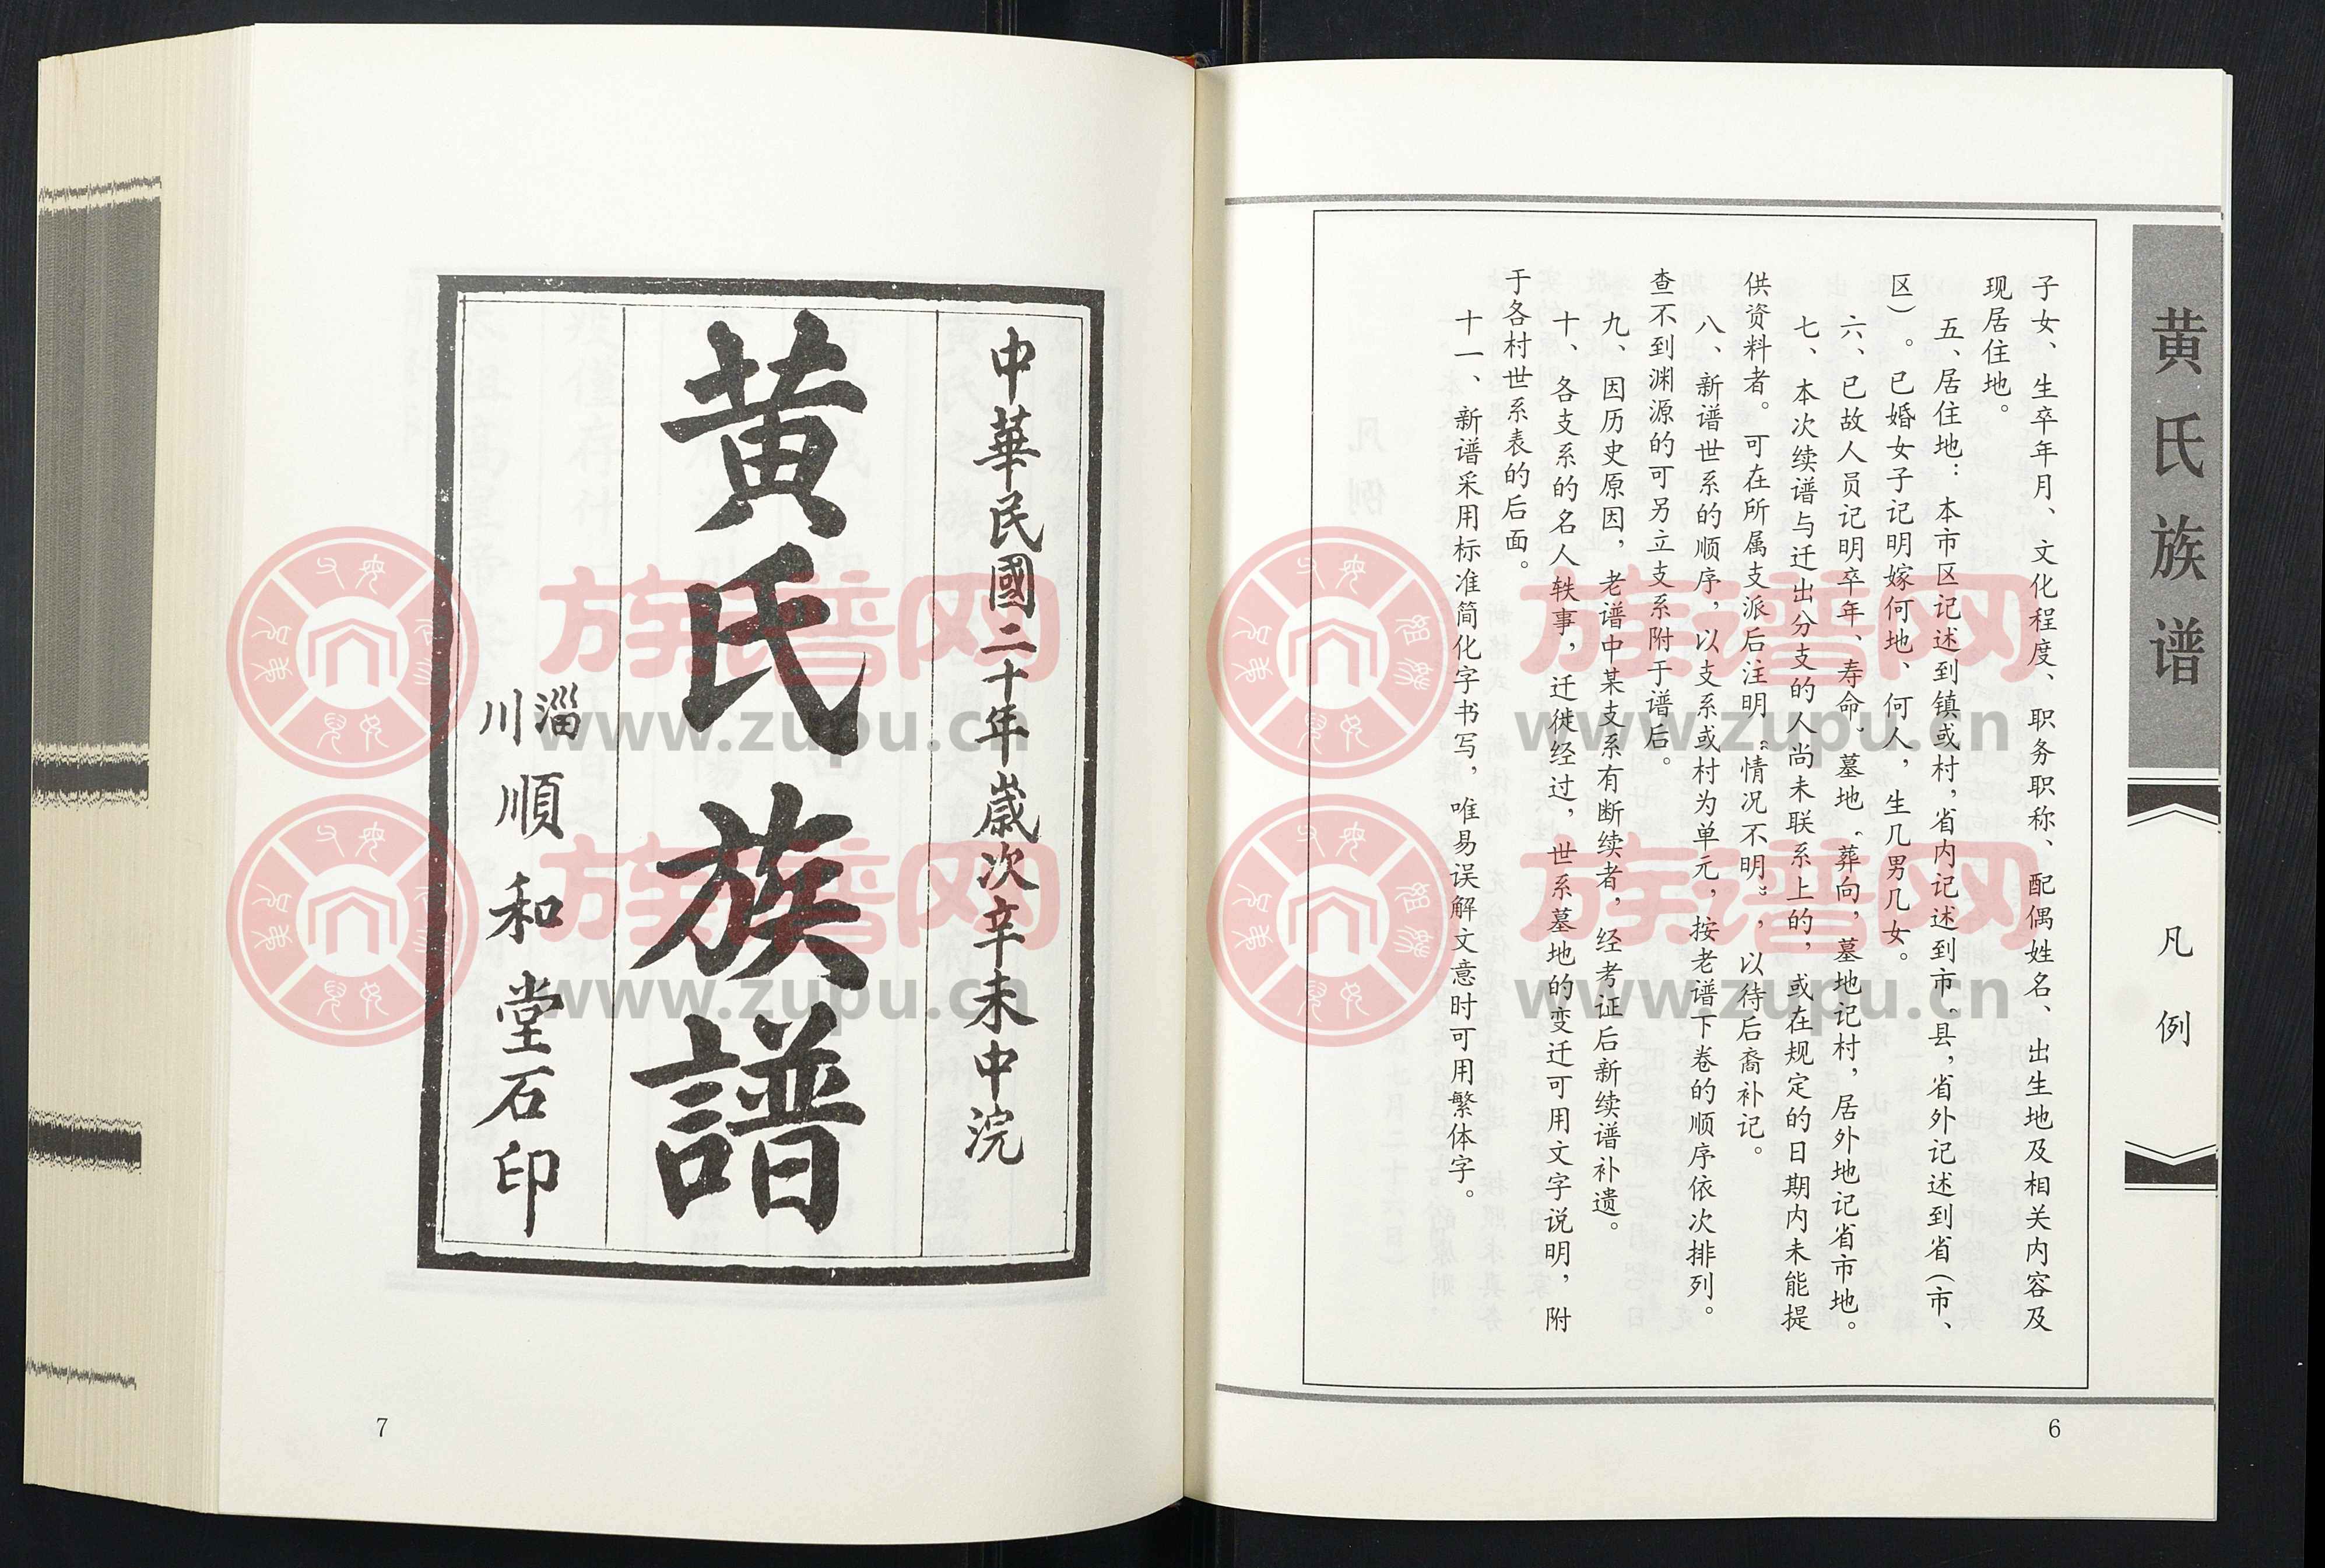 黄氏族谱
凡例
子女、生卒年月、文化程度、职务职称、配偶姓名、出生地及相关内容及
现居住地。
五、居住地：本市区记述到镇或村，省内记述到市、县，省外记述到省(市、
区)。已婚女子记明嫁何地、何人，生几男几女。
六、已故人员记明卒年、寿命、墓地、葬向，墓地记村，居外地记省市地。
七、本次续谱与迁出分支的人尚未联系上的，或在规定的日期内未能提
供资料者。可在所属支派后注明“情况不明”，以待后裔补记。
八、新谱世系的顺序，以支系或村为单元，按老谱下卷的顺序依次排列。
查不到渊源的可另立支系附于谱后。
九、因历史原因，老谱中某支系有断续者，经考证后新续谱补遗。
十、各支系的名人轶事，迁徙经过，世系墓地的变迁可用文字说明，附
于各村世系表的后面。
十一、新谱采用标准简化字书写，唯易误解文意时可用繁体字。
6
中華民國二十年歲次辛未中浣
黄氏族譜
淄川順和堂石印
7
族谱网
www.zupu.cn
族谱网
www.zupu.cn
族谱网
www.zupu.cn
族谱网
www.zupu.cn